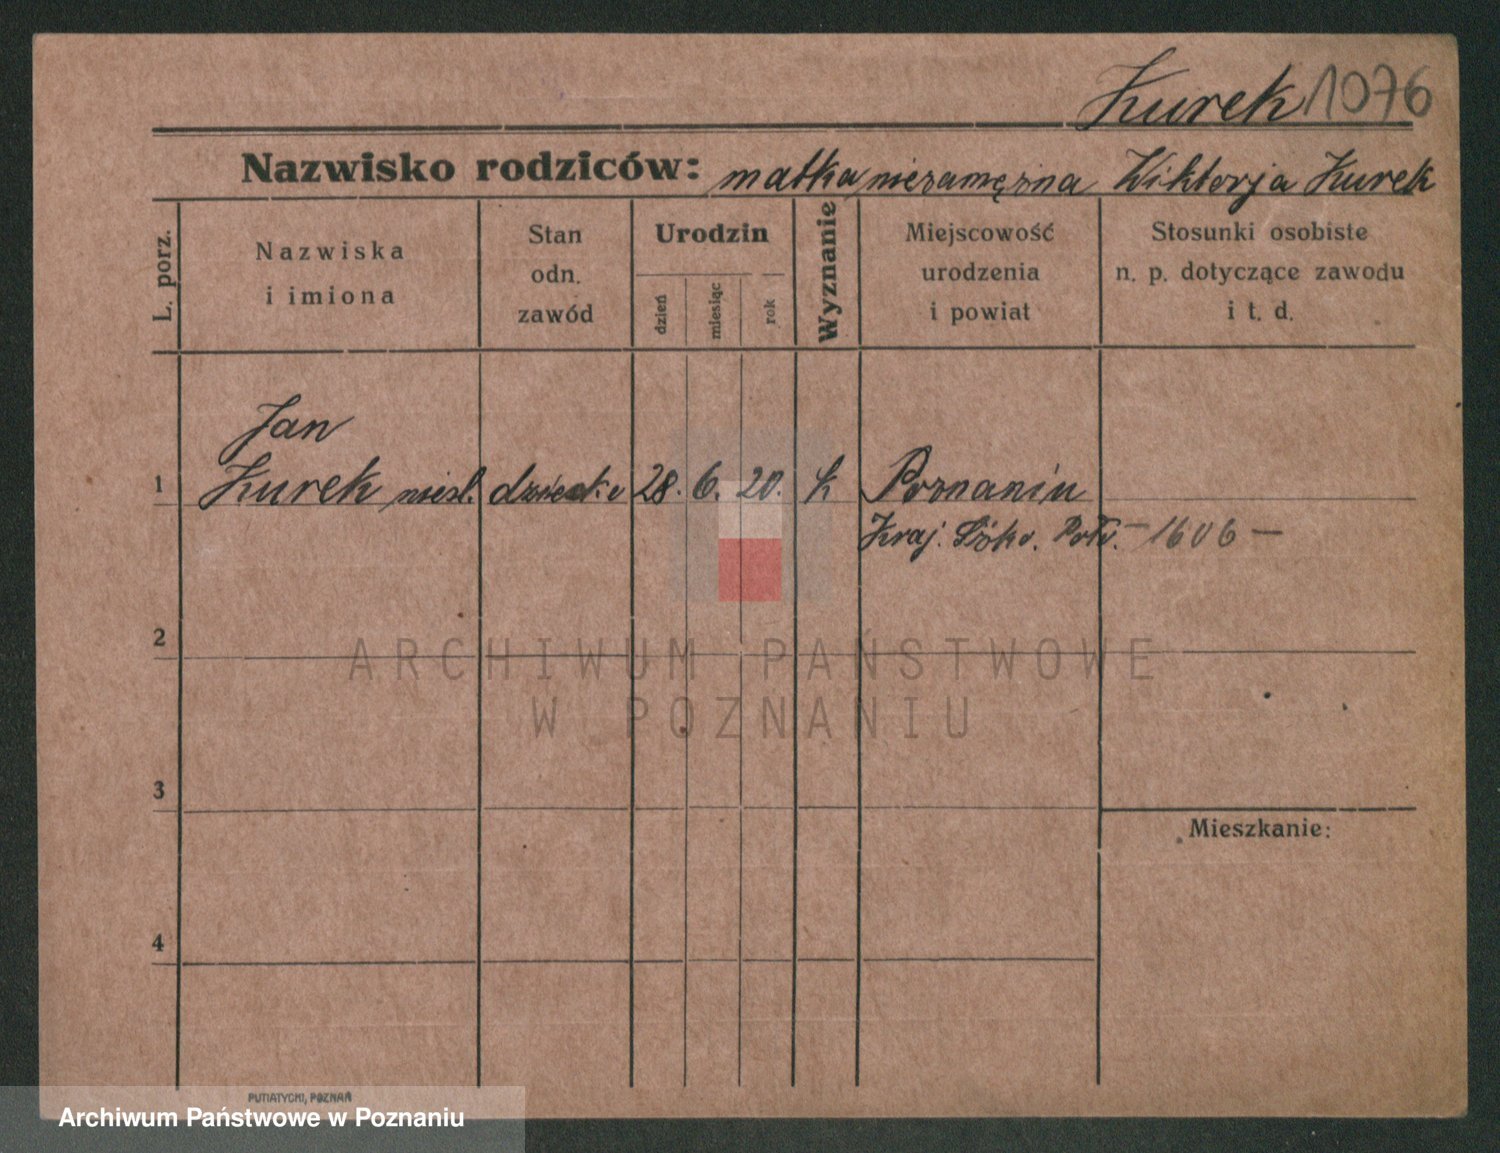 Kurek 1076
Nazwisko rodziców: matka niezamężna Wiktorja Kurek
L. porz.
Nazwiska
i imiona
Stan
odn.
zawód
Urodzin
dzień
miesiąc
rok
Wyznanie
Miejscowość
urodzenia
i powiat
Stosunki osobiste
n. p. dotyczące zawodu
i t. d.
Jan
1 Kurek nieśl. dziecko 28. 6. 20. k Poznaniu
Kraj. Położ. – 1606 –
2
3
Mieszkanie:
4
ARCHIWUM PAŃSTWOWE
W POZNANIU
PUTIATYCKI, POZNAŃ
Archiwum Państwowe w Poznaniu